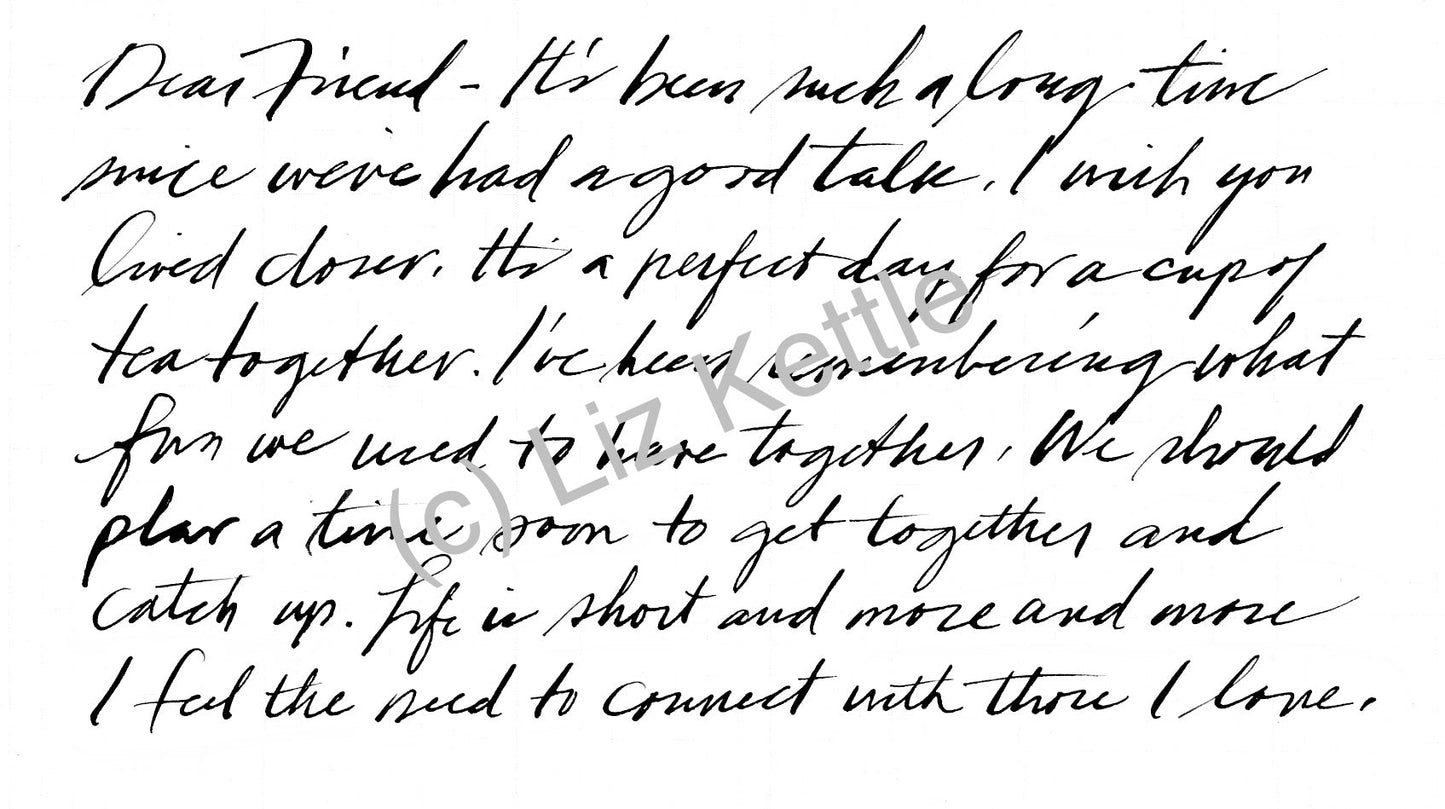 Dear Friend - It's been such a long time
since we've had a good talk. I wish you
lived closer. It's a perfect day for a cup of
tea together. I've been remembering what
fun we used to have together. We should
plan a time soon to get together and
catch up. Life is short and more and more
I feel the need to connect with those I love.
(c) Liz Kettle